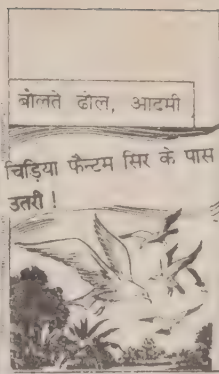 बोलते ढोल, आदमी
चिड़िया फैन्टम सिर के पास
उतरी !